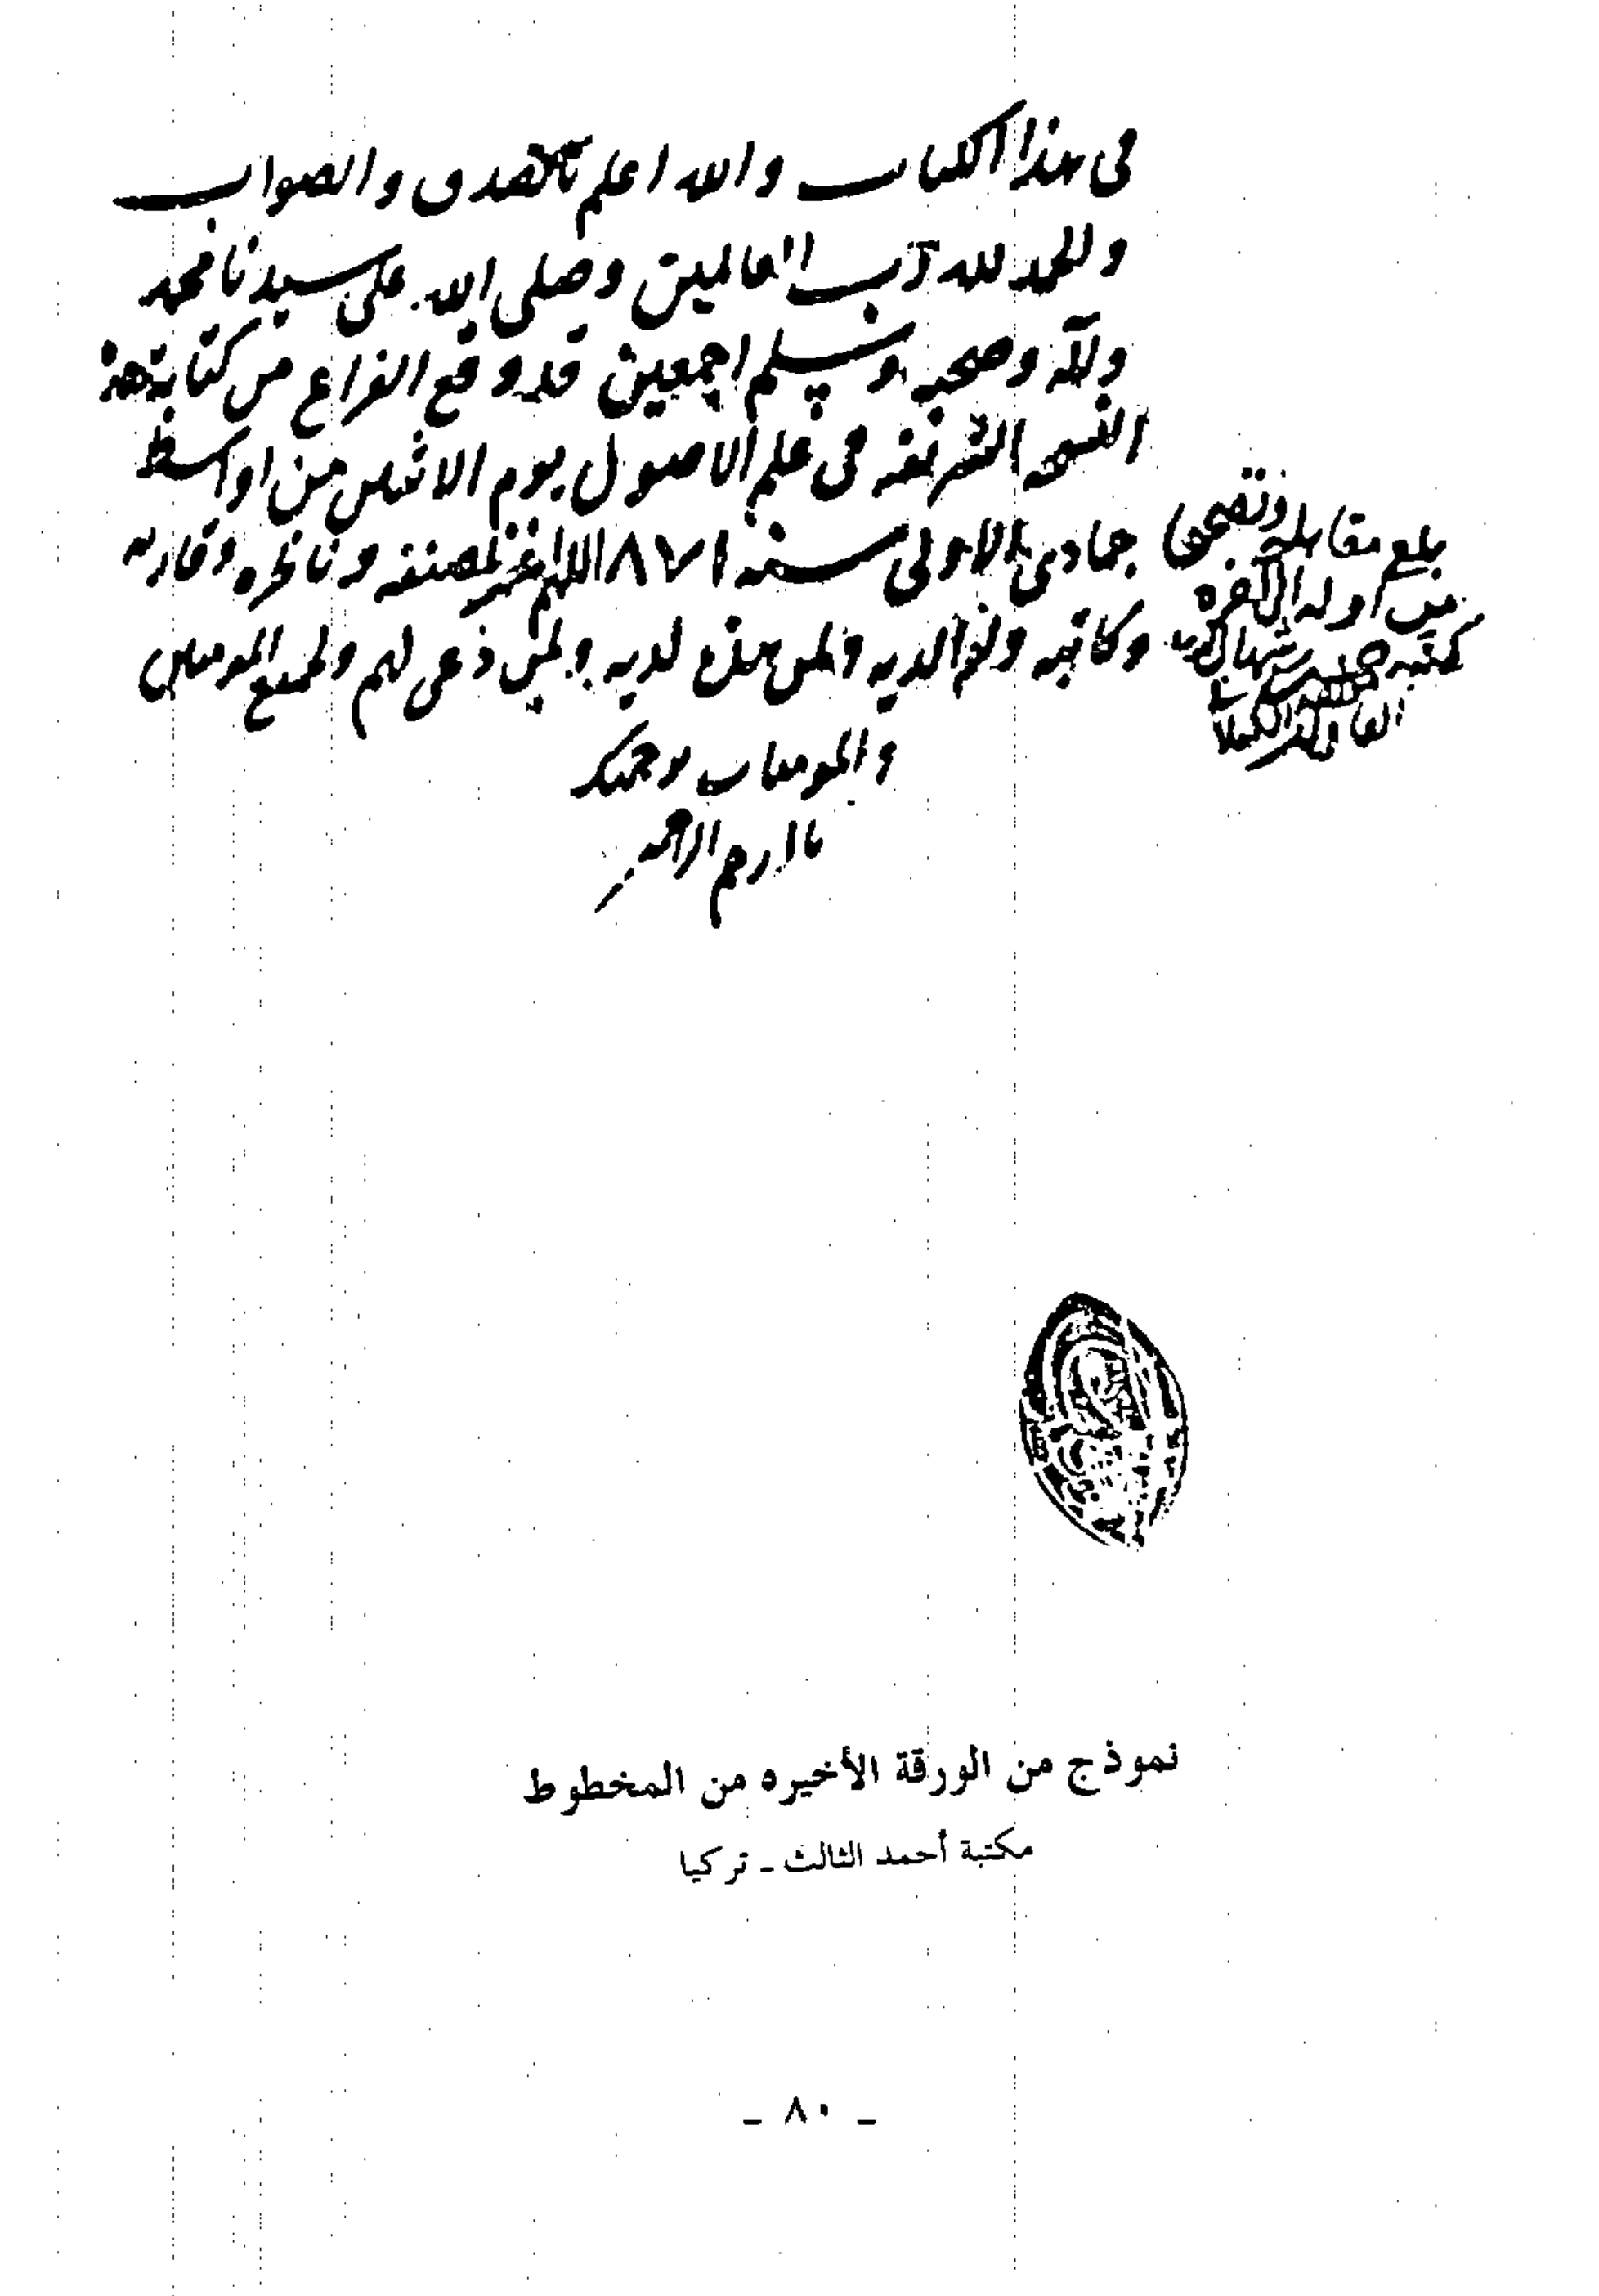 في هذا الكتاب والله اعلم بالصدق والصواب
والحمد لله رب العالمين وصلى الله على سيدنا محمد
وآله وصحبه وسلم اجمعين قد وقع الفراغ من كتابة هذه
النسخه الشريفه في علم الاصول يوم الاثنين من اواسط
جمادى الاولى سنة ٨٧١ اللهم اغفر لمصنفه وناظره وقاريه
وكاتبه ولوالديه ولمن له لديه ولمن دعى لهم ولجميع المومنين
والمومنات برحمتك
يا ارحم الراحمين
بلغ مقابلة وتصحيحا
من اوله الى اخره
كتبه
نموذج من الورقة الأخيره من المخطوط
مكتبة أحمد الثالث ـ تركيا
ـ ٨٠ ـ